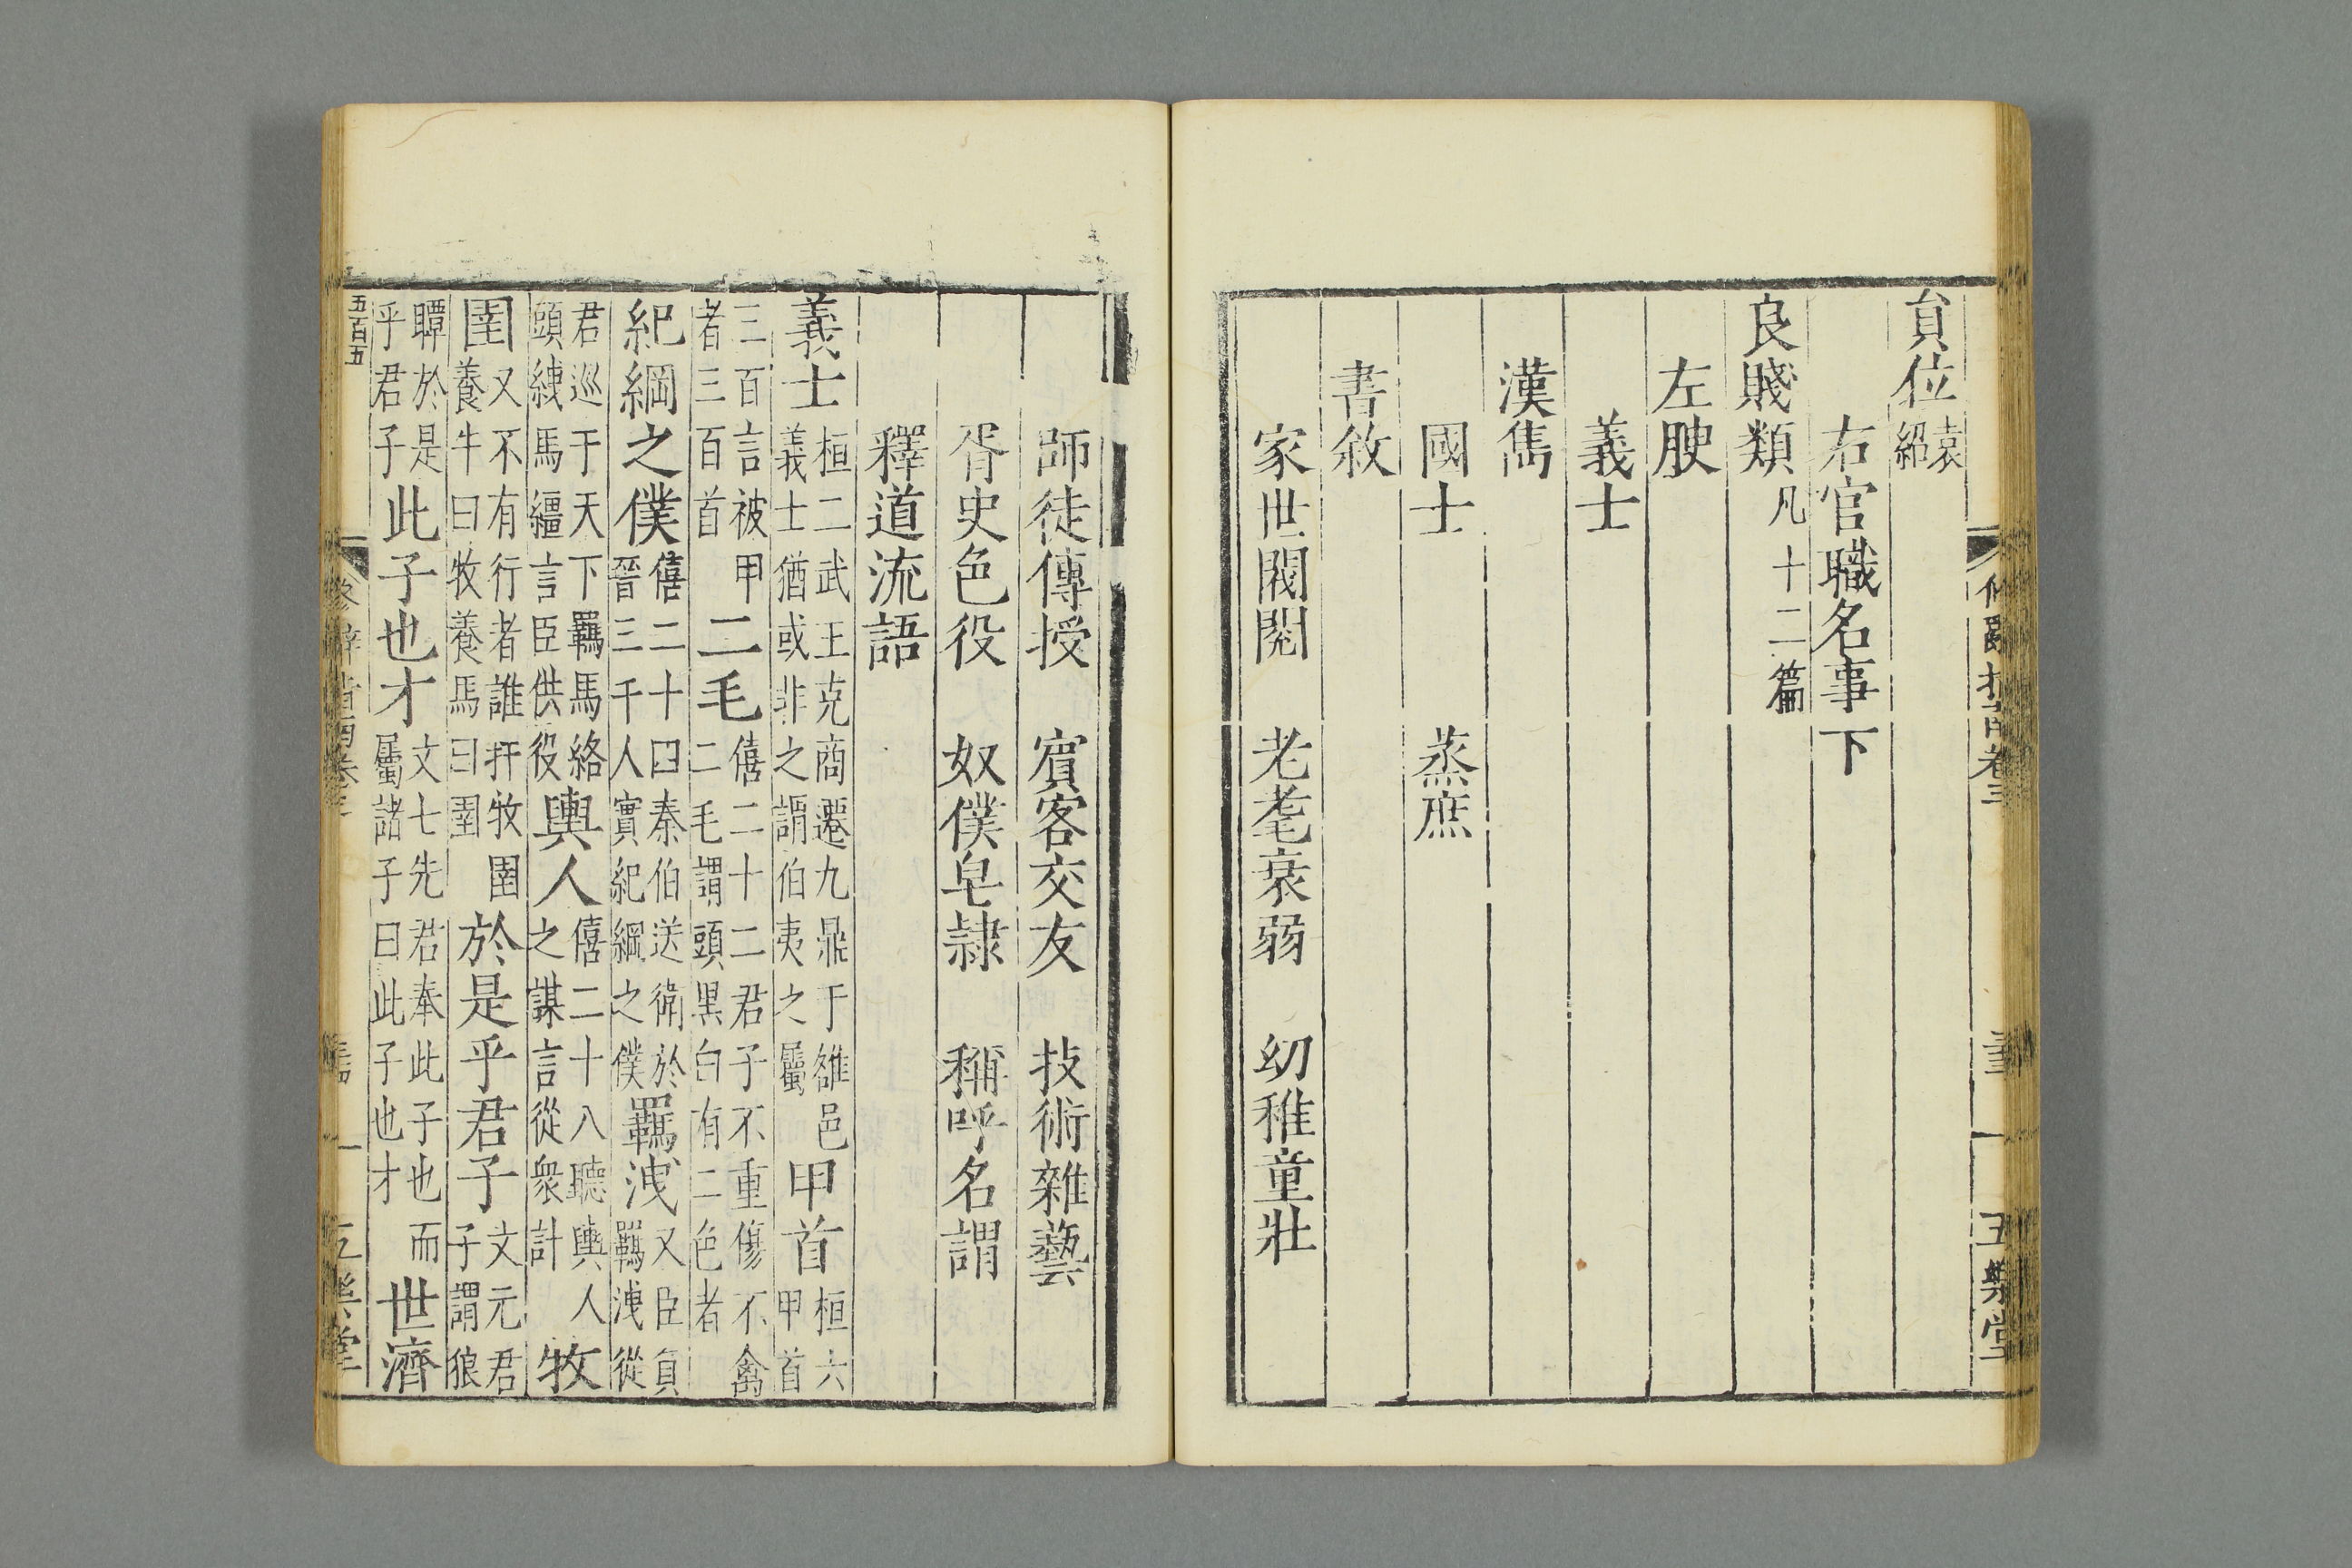 貟位袁紹
右官職名事下
良賤類凡十二篇
左腴
義士
漢雋
國士 蒸庶
書敘
家世閥閱 老耄衰弱 幼稚童壯
師徒傳授 賓客交友 技術雜藝
胥史色役 奴僕皂隷 稱呼名謂
釋道流語
義士桓二武王克商遷九鼎于雒邑義士猶或非之謂伯夷之屬甲首桓六甲首
三百言被甲者三百首二毛僖二十二君子不重傷不禽二毛謂頭黑白有二色者
紀綱之僕僖二十四秦伯送衛於晉三千人實紀綱之僕羈洩又臣負羈洩從
君巡于天下羈馬絡頭紲馬繮言臣供役輿人僖二十八聽輿人之謀言從衆計牧
圉又不有行者誰扞牧圉養牛曰牧養馬曰圉於是乎君子文元君子謂狼
瞫於是乎君子此子也才文七先君奉此子也而屬諸子曰此子也才世濟
五百五